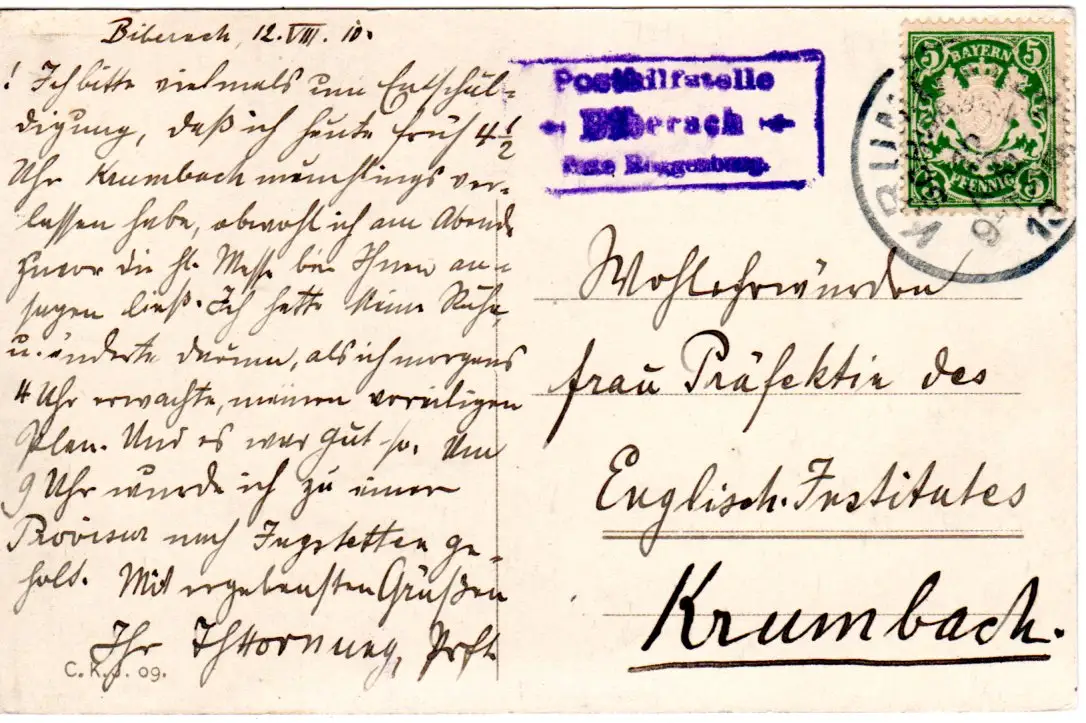 Biberach, 12. VIII. 10.
! Ich bitte vielmals um Entschul-
digung, daß ich heute früh 4 1/2
Uhr Krumbach meuchlings ver-
lassen habe, obwohl ich am Abende
zuvor die hl. Messe bei Ihnen an-
sagen ließ. Ich hatte keine Ruhe,
u. änderte darum, als ich morgens
4 Uhr erwachte, meinen voreiligen
Plan. Und es war gut so. Um
9 Uhr wurde ich zu einer
Provisur nach Ingstetten ge-
holt. Mit ergebensten Grüßen
Ihr Hornung, Prft.
C.K.J. 09.
Posthilfstelle
Biberach
Taxe Roggenburg.
BAYERN
5 5
PFENNIG
5 5
KRUMBACH
Wohlehrwürden
Frau Präfektin des
Englisch. Institutes
Krumbach.